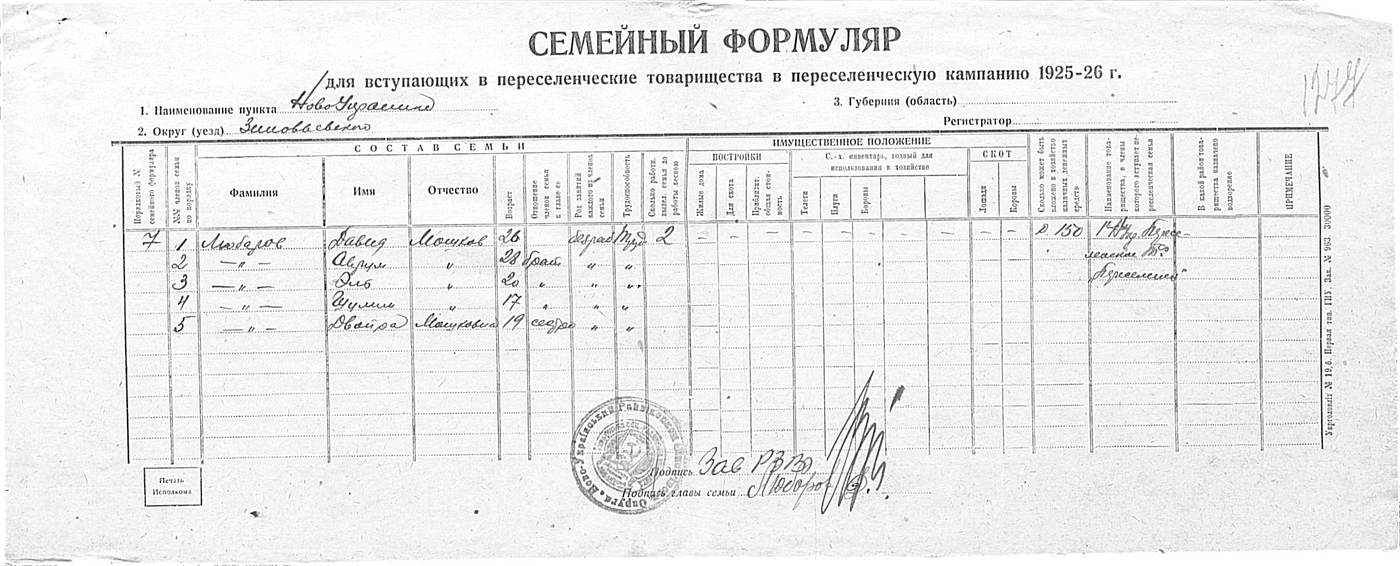 СЕМЕЙНЫЙ ФОРМУЛЯР
для вступающих в переселенческие товарищества в переселенческую кампанию 1925-26 г.
1277
1. Наименование пункта Ново Украинка
3. Губерния (область)
2. Округ (уезд) Зиновьевского
Регистратор
Порядковый № семейного формуляра
№№ членов семьи по порядку
СОСТАВ СЕМЬИ
Фамилия
Имя
Отчество
Возраст
Отношение членов семьи к главе ее
Род занятий каждого из членов семьи
Трудоспособность
Сколько работн. выдел. семья до работы весною
ИМУЩЕСТВЕННОЕ ПОЛОЖЕНИЕ
ПОСТРОЙКИ
Жилые дома
Для скота
Приблизит. общая стоимость
С.-х. инвентарь, годный для использования в хозяйстве
Телеги
Плуги
Бороны
СКОТ
Лошади
Коровы
Сколько может быть вложено в хозяйство наличных денежных средств
Наименование товарищества, в члены которого вступает переселенческая семья
В какой район товарищества назначено водворение
ПРИМЕЧАНИЕ
7 1 Любаров Давид Мошков 26 безраб Труд 2 – – – – – – – – – 150
2 —„— „ 28 брат „ „
3 —„— Эль „ 20 „ „ „
4 —„— Шулим „ 17 „ „ „
5 —„— Двойра Мошковна 19 сестра „ „
Печать
Исполкома
Подпись Зав РЗВ
Подпись главы семьи Любаров
Укрголовліт № 19,б. Первая тип. ГИУ. Зак. № 963 30000